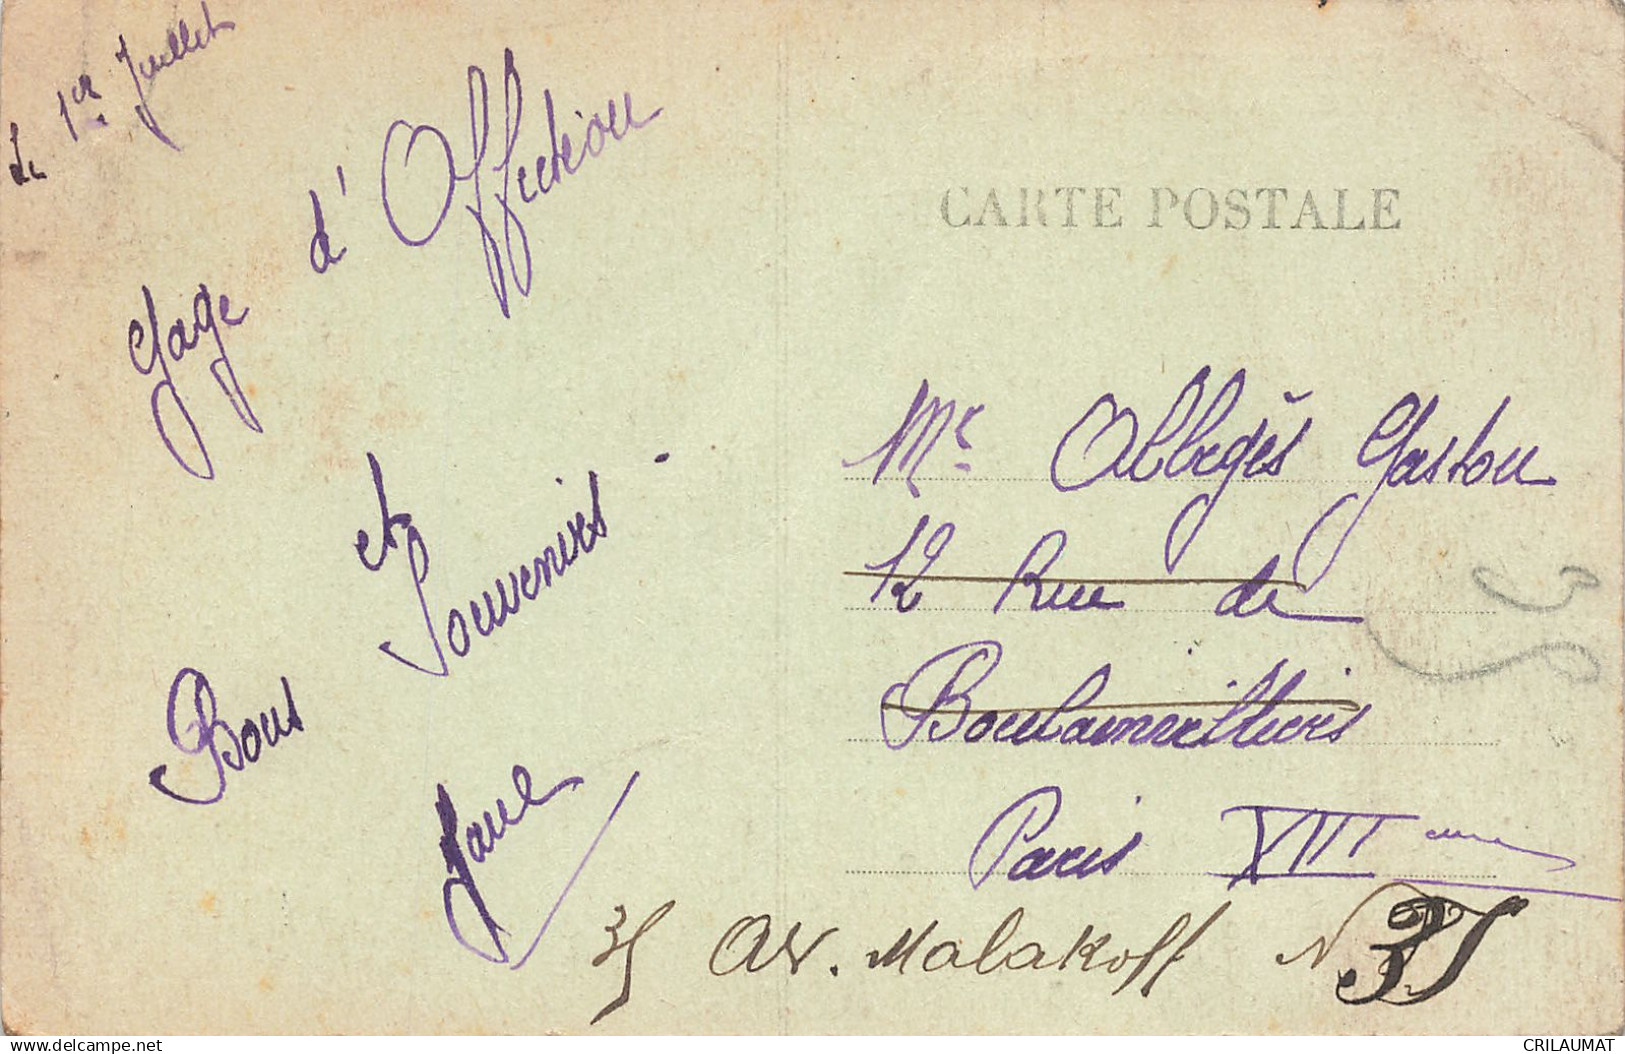 Le 1er Juillet
Gage d'Affection
et
Bons Souvenirs -
CARTE POSTALE
Mr Albegès Gaston
12 Rue de
Boulainvilliers
Paris XVIème
35 Av. Malakoff N 35
35
delcampe.net
CRILAUMAT